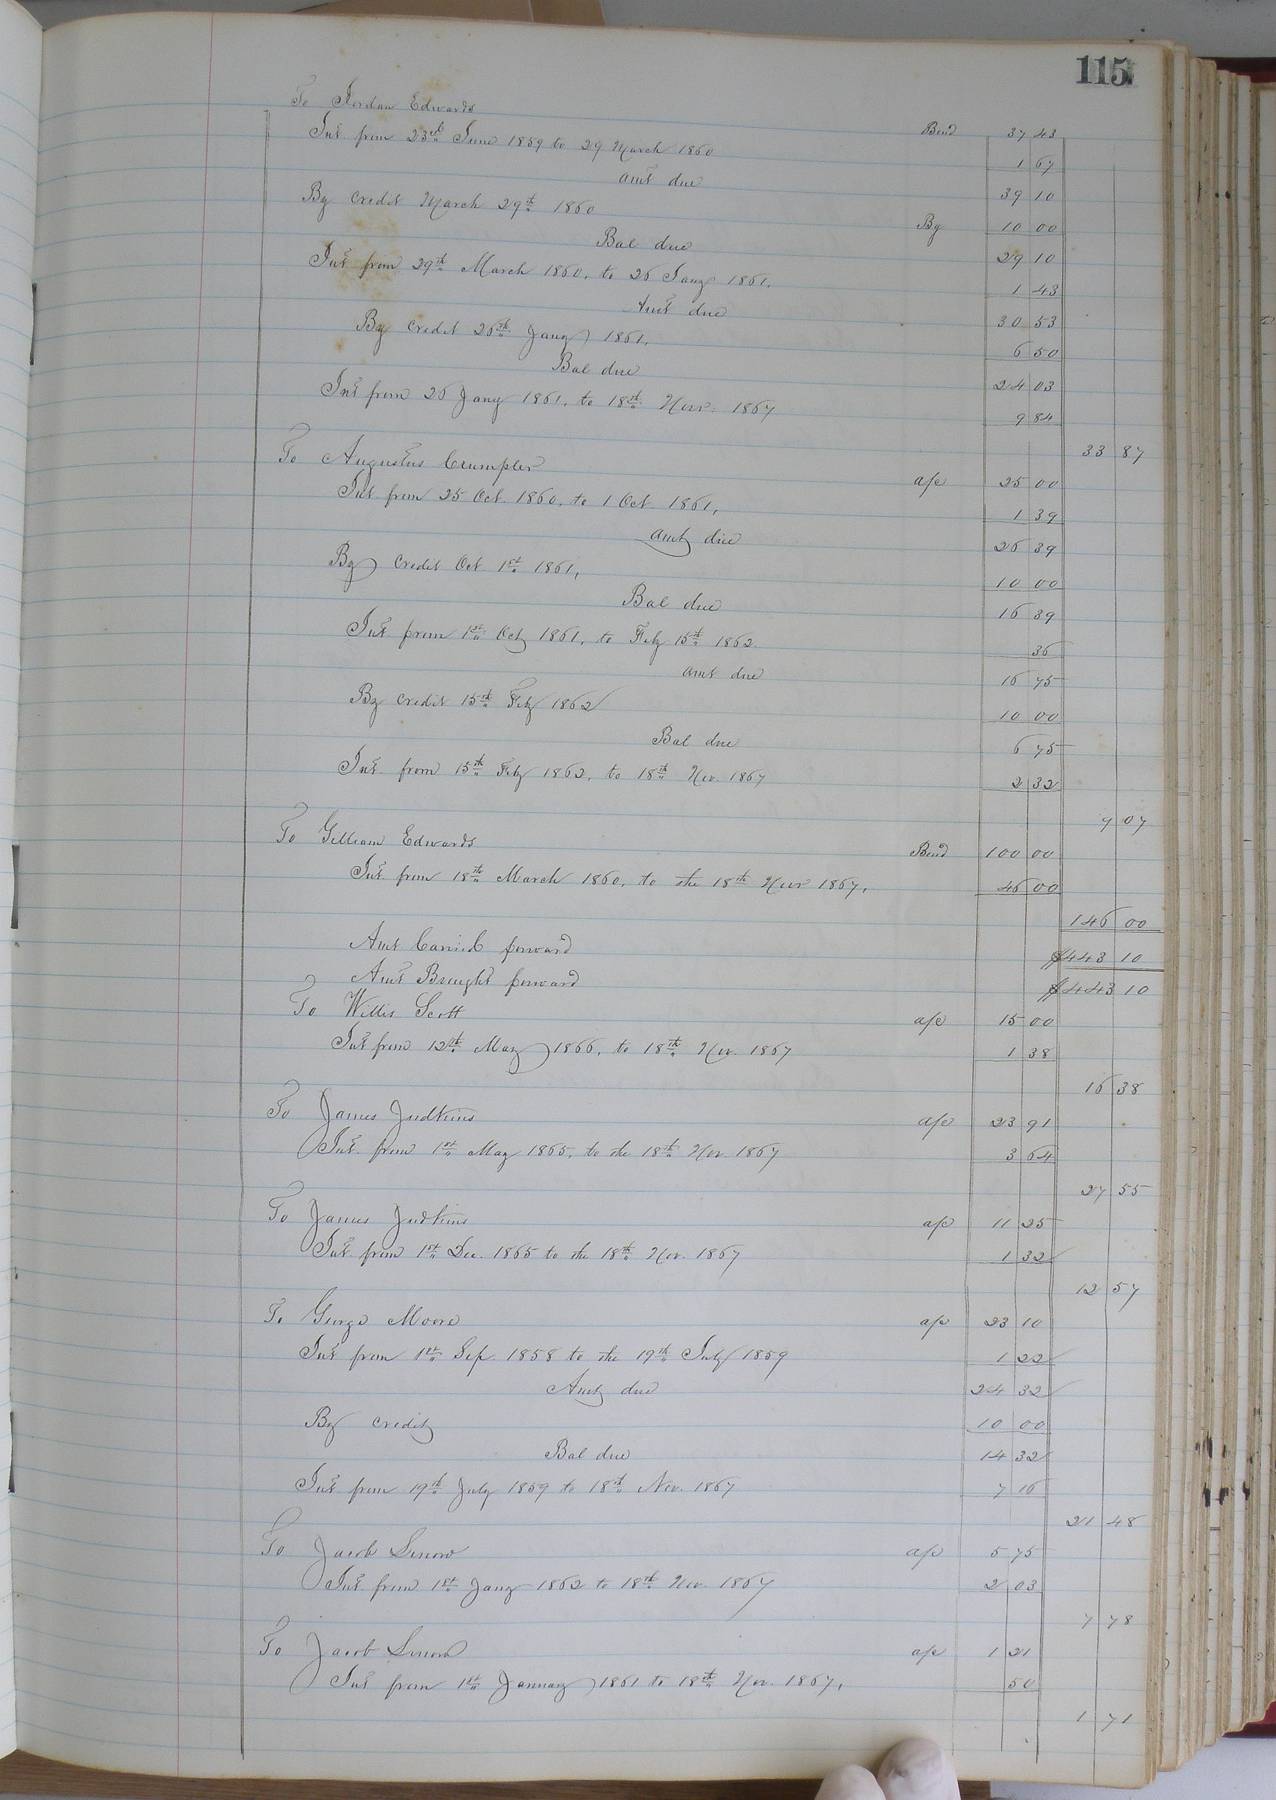 115
To Jordan Edwards Bond 37 43
Int from 23rd June 1859 to 29 March 1860 1 67
amt due 39 10
By credit March 29th 1860 By 10 00
Bal due 29 10
Int from 29th March 1860, to 26 Jany 1861, 1 43
Amt due 30 53
By credit 26th Jany 1861, 6 50
Bal due 24 03
Int from 26 Jany 1861, to 18th Nov. 1867 9 84
33 87
To Augustus Crumpler a/c 25 00
Int from 25 Oct. 1860, to 1 Oct. 1861, 1 39
amt due 26 39
By Credit Oct 1st 1861, 10 00
Bal due 16 39
Int from 1st Oct 1861, to Feby 15th 1862 36
amt due 16 75
By credit 15th Feby 1862 10 00
Bal due 6 75
Int. from 15th Feby 1862, to 18th Nov. 1867 2 32
9 07
To Gilliam Edwards Bond 100 00
Int. from 18th March 1860, to the 18th Nov 1867, 46 00
146 00
Amt Carried forward $443 10
Amt Brought forward $443 10
To Willis Scott a/c 15 00
Int from 12th May 1866, to 18th Nov. 1867 1 38
16 38
To James Judkins a/c 23 91
Int. from 1st May 1865, to the 18th Nov 1867 3 64
27 55
To James Judkins a/c 11 25
Int. from 1st Dec. 1865 to the 18th Nov. 1867 1 32
12 57
To George Moore a/c 23 10
Int from 1st Sep. 1858 to the 19th July 1859 1 22
Amt due 24 32
By credit 10 00
Bal due 14 32
Int from 19th July 1859 to 18th Nov. 1867 7 16
21 48
To Jacob Simon a/c 5 75
Int from 1st Jany 1862 to 18th Nov. 1867 2 03
7 78
To Jacob Simon a/c 1 21
Int from 1st January 1861 to 18th Nov. 1867, 50
1 71